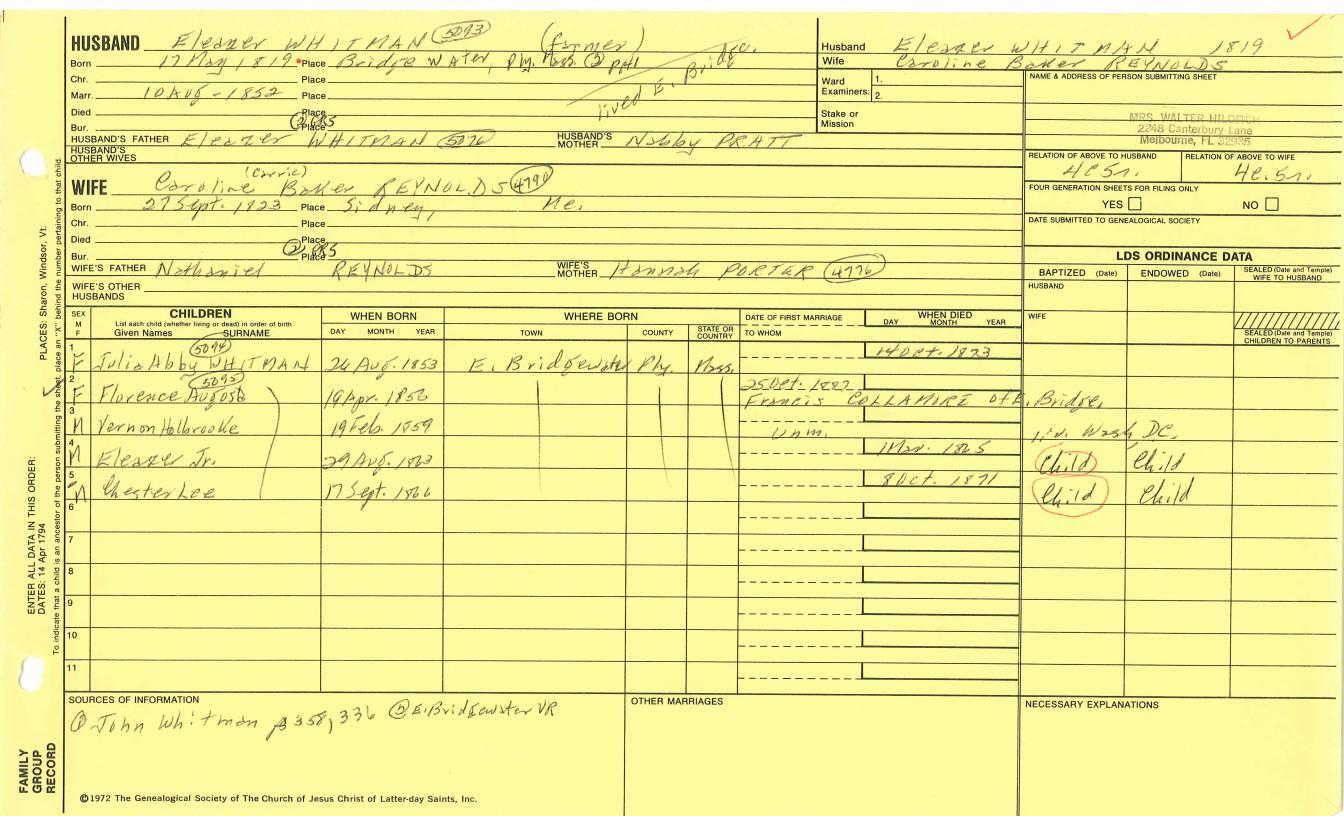 HUSBAND Eleazer WHITMAN 5093 (farmer)
Born 17 May 1819 Place Bridge Water, Ply. Mass. (2)
lived E. Bridge.
Chr. Place
Marr. 10 Aug - 1852 Place
Died Place
Bur. Place
HUSBAND'S FATHER Eleazer WHITMAN 5076 HUSBAND'S MOTHER Nabby PRATT
HUSBAND'S OTHER WIVES
(Carrie)
WIFE Caroline Baker REYNOLDS 4790
Born 27 Sept. 1823 Place Sidney, Me.
Chr. Place
Died Place
Bur. Place
WIFE'S FATHER Nathaniel REYNOLDS WIFE'S MOTHER Hannah PORTER 4776
WIFE'S OTHER HUSBANDS
Husband Eleazer WHITMAN 1819
Wife Caroline Baker REYNOLDS
Ward Examiners: 1.
2.
Stake or Mission
NAME & ADDRESS OF PERSON SUBMITTING SHEET
MRS. WALTER
2248 Canterbury Lane
Melbourne, FL 32935
RELATION OF ABOVE TO HUSBAND RELATION OF ABOVE TO WIFE
4c5r. 4c.5r.
FOUR GENERATION SHEETS FOR FILING ONLY
YES NO
DATE SUBMITTED TO GENEALOGICAL SOCIETY
LDS ORDINANCE DATA
BAPTIZED (Date) ENDOWED (Date) SEALED (Date and Temple) WIFE TO HUSBAND
HUSBAND
WIFE
SEALED (Date and Temple) CHILDREN TO PARENTS
SEX M F
CHILDREN
List each child (whether living or dead) in order of birth
Given Names SURNAME
WHEN BORN
DAY MONTH YEAR
WHERE BORN
TOWN COUNTY STATE OR COUNTRY
DATE OF FIRST MARRIAGE
TO WHOM
WHEN DIED
DAY MONTH YEAR
5094
1 F Julia Abby WHITMAN 26 Aug. 1853 E. Bridgewater Ply. Mass. 14 Oct. 1873
5095
2 F Florence Augusta 19 Apr. 1856 25 Oct. 1882
Francis COLLAMORE of E. Bridge.
3 M Vernon Holbrooke 19 Feb. 1859 Unm. liv. Wash DC.
4 M Eleazer Jr. 29 Aug. 1863 1 Mar. 1865 Child Child
5 M Chester Lee 17 Sept. 1866 8 Oct. 1871 Child Child
6
7
8
9
10
11
SOURCES OF INFORMATION
(1) John Whitman p 358, 336 (2) E. Bridgewater VR
OTHER MARRIAGES
NECESSARY EXPLANATIONS
©1972 The Genealogical Society of The Church of Jesus Christ of Latter-day Saints, Inc.
FAMILY GROUP RECORD
ENTER ALL DATA IN THIS ORDER:
DATES: 14 Apr 1794
PLACES: Sharon, Windsor, Vt.
To indicate that a child is an ancestor of the person submitting the sheet, place an "X" behind the number pertaining to that child.